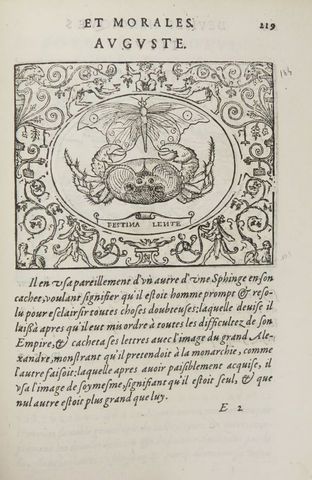 ET MORALES.
219
AVGVSTE.
FESTINA LENTE
Il en vsa pareillement d'vn autre d'vne Sphinge en son
cachet, voulant signifier qu'il estoit homme prompt & reso-
lu pour esclarsir toutes choses doubteuses: laquelle deuise il
laissà apres qu'il eut mis ordre à toutes les difficultez de son
Empire, & cacheta ses lettres auec l'image du grand Ale-
xandre, monstrant qu'il pretendoit à la monarchie, comme
l'autre faisoit: laquelle apres auoir paisiblement acquise, il
vsa l'image de soymesme, signifiant qu'il estoit seul, & que
nul autre estoit plus grand que luy.
E 2